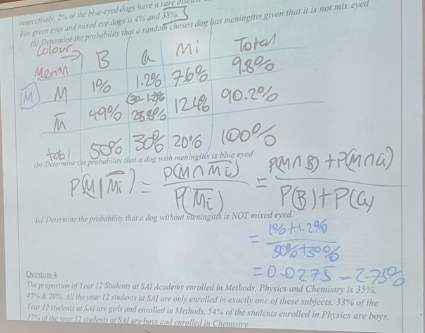 respectively. 2% of the blue-eyed dogs have a rare
For green eyes and mixed eye dogs is 4% and 38%.
(a) Determine the probability that a random chosen dog has meningitis given that it is not mix eyed
Colour → B G Mi Total
M M 1% 1.2% 7.6% 9.8%
M̅ 49% 28.8% 12.4% 90.2%
total 50% 30% 20% 100%
(b) Determine the probability that a dog with meningitis is blue eyed
P(M|M̅i̅) = P(M∩M̅i̅) / P(M̅i̅) = P(M∩B) + P(M∩G) / P(B) + P(G)
(c) Determine the probability that a dog without meningitis is NOT mixed eyed.
= 1% + 1.2% / 50% + 30%
= 0.0275 - 2.75%
Question 4
The proportion of Year 12 Students at SAI Academy enrolled in Methods, Physics and Chemistry is 35%,
45% & 20%. All the year 12 students at SAI are only enrolled in exactly one of these subjects. 33% of the
Year 12 students at SAI are girls and enrolled in Methods, 54% of the students enrolled in Physics are boys.
12% of the year 12 students at SAI are boys and enrolled in Chemistry